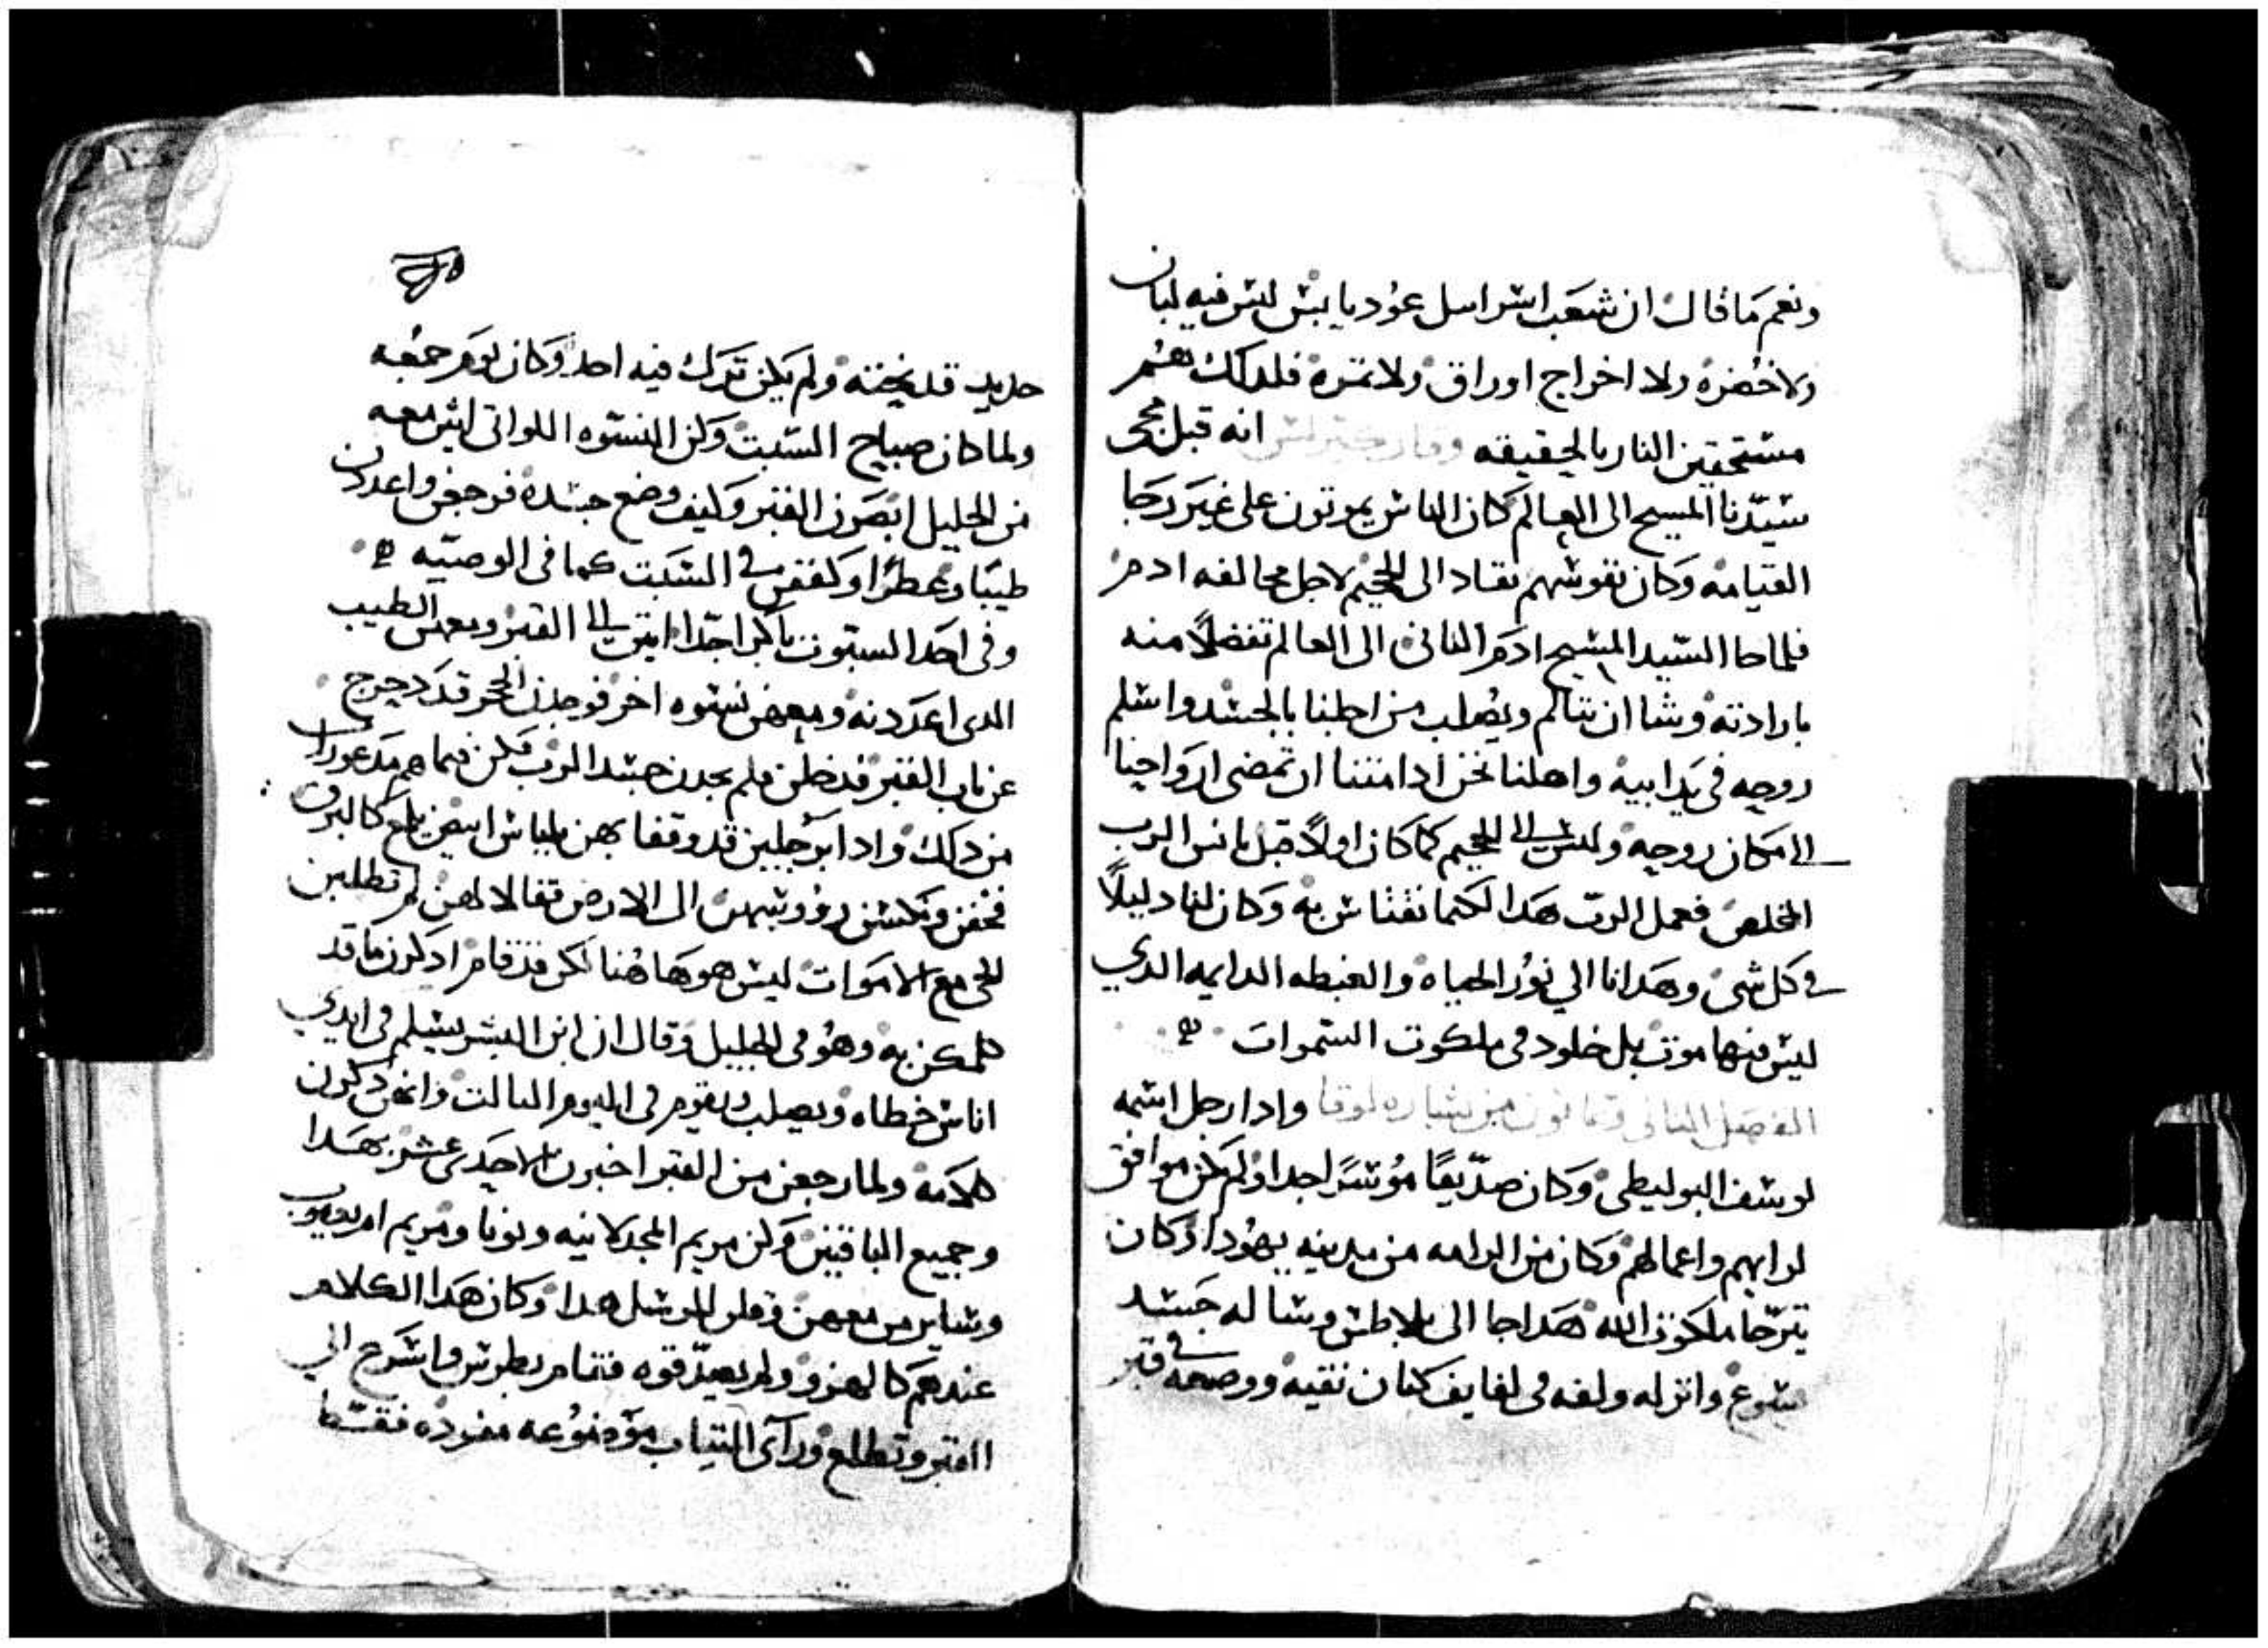 ونعم ما قال ان شعب اسراسل عود يابس ليس فيه لبان
ولا خضره ولا اخراج اوراق ولا تمرة فلدلك هم
مستحقين النار بالحقيقه انه قبل مجى
سيدنا المسيح الى العالم كان الناس يموتون على غير رجا
القيامه وكان نفوسهم تقاد الى الجحيم لاجل مخالفه ادم
فلما جا السيد المسيح ادم التانى الى العالم تفضلاً منه
بارادته وشا ان يتالم ويصلب من اجلنا بالجسد واسلم
روحه فى يد ابيه واهلنا نحن ادا متنا ان تمضى ارواحنا
الى مكان روحه وليس الى الجحيم كما كان اولاً قبل تانس الرب
المخلص فعمل الرب هدا لكيما نقتاس به وكان لنا دليلاً
فى كل شى وهدانا الي نور الحياه والغبطه الدايمه الدي
ليس فيها موت بل خلود فى ملكوت السموات
الفصل التانى وتمانون من بشاره لوقا وادا رجل اسمه
يوسف البوليطى وكان صدّيقًا موسرًا جدا ولم يكن موافق
لرايهم واعمالهم وكان من الرامه من مدينه يهودا وكان
يترجا ملكوت الله هدا جا الى بلاطس وسا له جسد
يسوع وانزله ولفه فى لفايف كتان نقيه ووضعه فى قبر
جديد قد نحته ولم يكن ترك فيه احد وكان يوم جمعه
ولما كان صباح السبت وكن النسوه اللواتى اتين معه
من الجليل ابصرن القبر وكيف وضع جسده فرجعن واعددن
طيبًا وعطرًا وكففن فى السبت كما فى الوصيه
وفى احد السبوت باكرا جدا اتين الى القبر ومعهن الطيب
الدى اعددنه ومعهن نسوه اخر فوجدن الحجر قد دحرج
عن باب القبر فدخلن فلم يجدن جسد الرب فكن فيما هم مدعورات
من دلك وادا برجلين قد وقفا بهن بلباس ابيض يلمع كالبرق
فخفن ونكسن رووسهن الى الارض فقالا لهن لم تطلبن
الحى مع الاموات ليس هو هاهنا لكن قد قام ادكرن ما قد
كلمكن به وهو فى الجليل وقال ان ابن البشر يسلم فى ايدي
اناس خطاه ويصلب ويقوم فى اليوم التالت وانهن دكرن
كلامه ولما رجعن من القبر اخبرن الاحدى عشر بهدا
وجميع الباقيين وكن مريم المجدلانيه ويونا ومريم ام يعقوب
وساير من معهن وقلن للرسل هدا وكان هدا الكلام
عندهم كالهزو ولم يصدقوه فقام بطرس واسرع الي
القبر وتطلع وراى التياب موضوعه مفرده